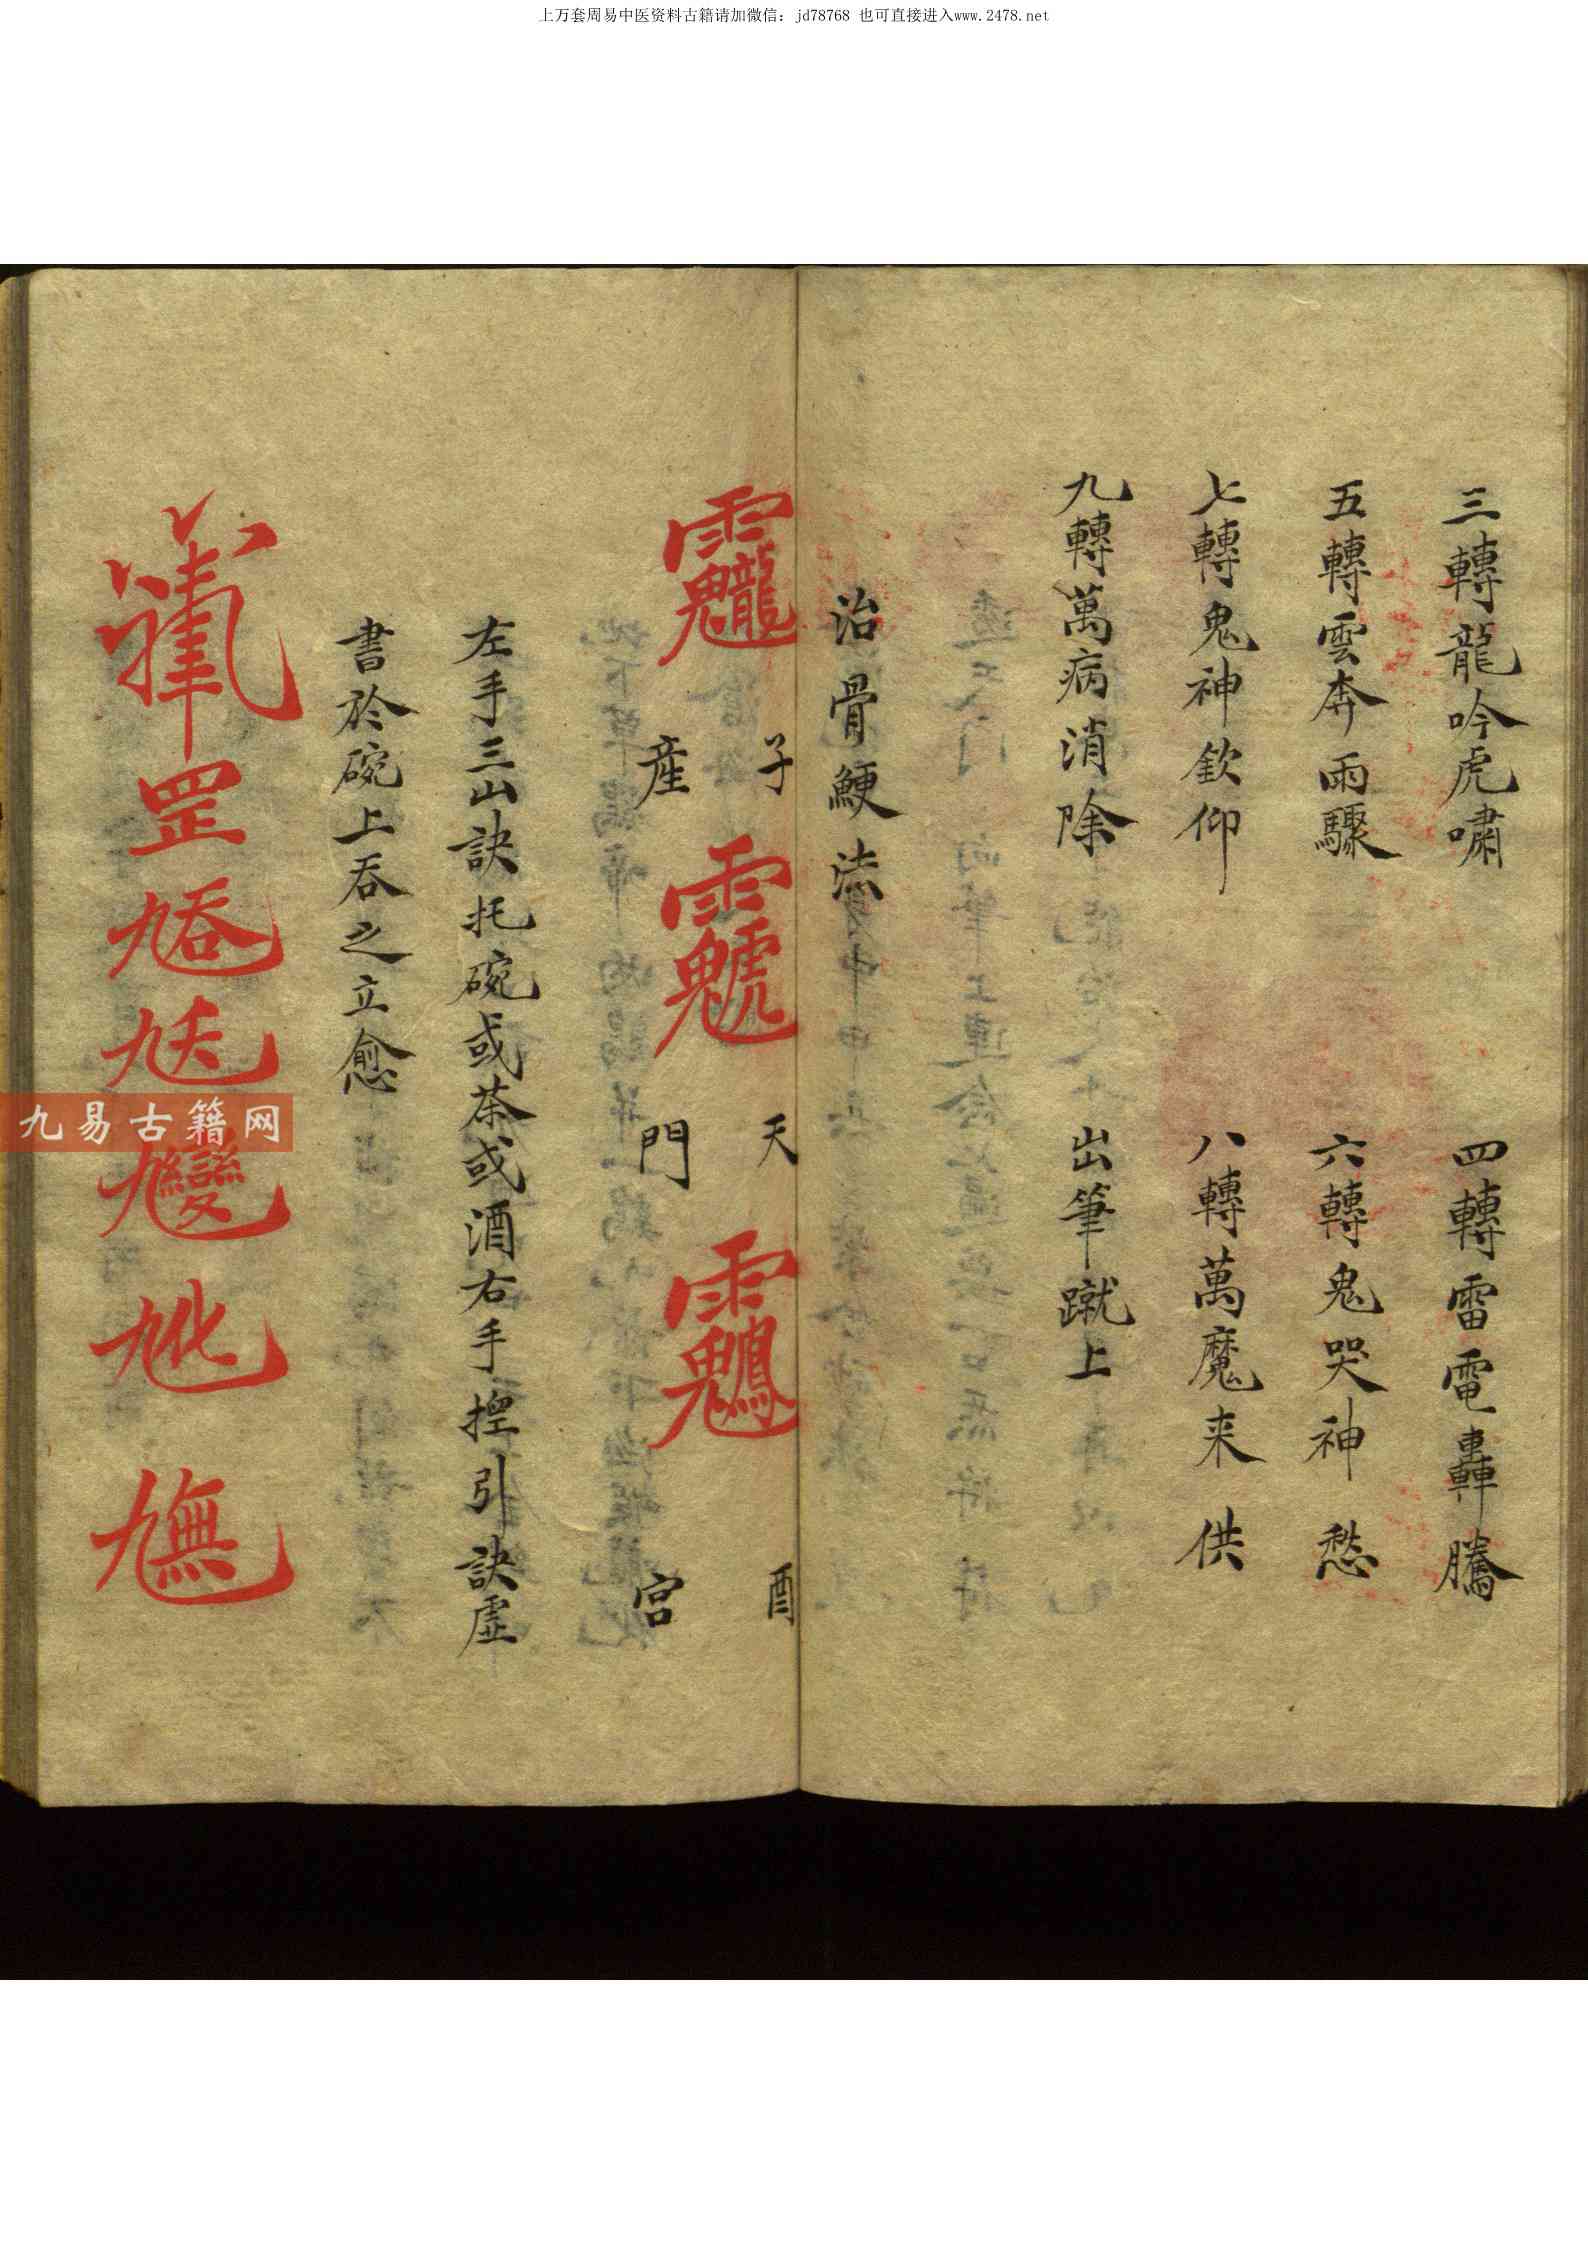 上万套周易中医资料古籍请加微信：jd78768 也可直接进入www.2478.net
三轉龍吟虎嘯 四轉雷電轟騰
五轉雲奔雨驟 六轉鬼哭神愁
七轉鬼神欽仰 八轉萬魔来供
九轉萬病消除 出筆蹴上
治骨鯁法
子 天 酉
産 門 宮
左手三山訣托碗或茶或酒右手揑引訣虛
書於碗上吞之立愈
罡
九易古籍网